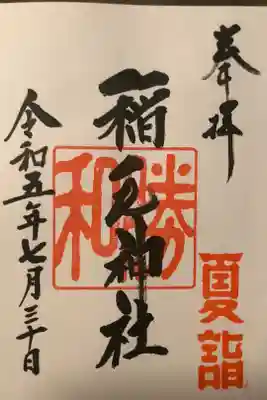 奉拝
稲毛神社
勝和
夏詣
令和五年七月三十日